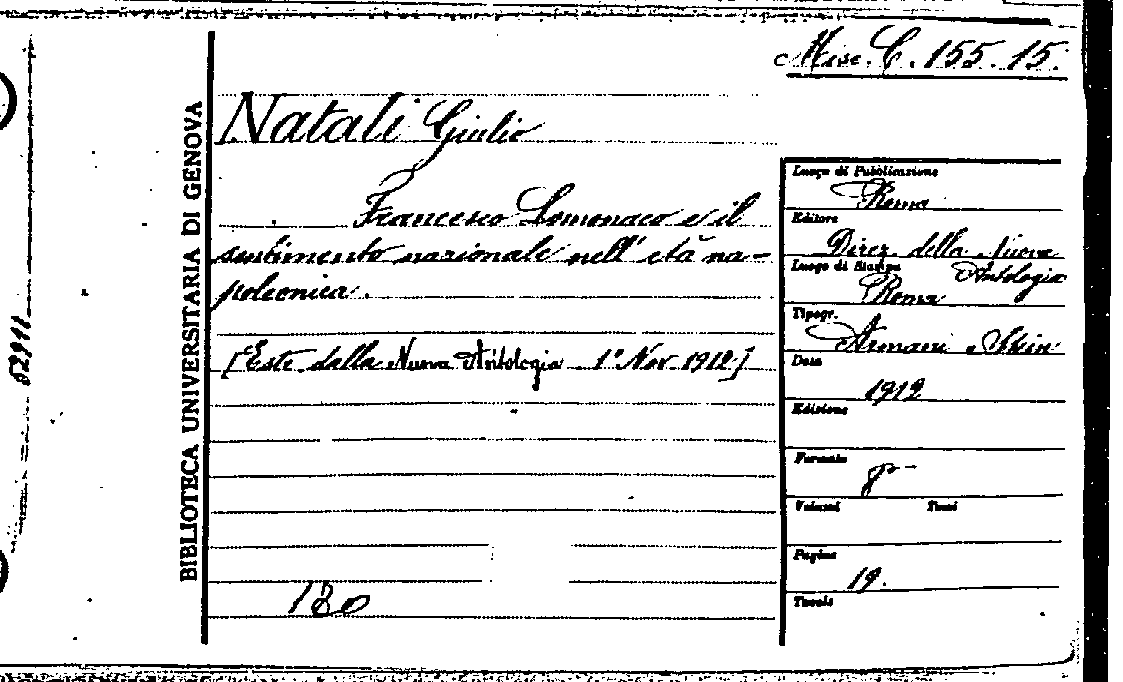 Misc. C. 155. 15.
Natali Giulio
Francesco Lomonaco e il
sentimento nazionale nell'età na-
poleonica.
[Estr. dalla Nuova Antologia 1° Nov. 1912]
180
BIBLIOTECA UNIVERSITARIA DI GENOVA
52911
Luogo di Pubblicazione
Roma
Editore
Direz. della Nuova
Antologia
Luogo di Stampa
Roma
Tipogr.
Armani &
Data
1912
Edizione
Formato
8°
Volumi Tomi
Pagine
19.
Tavole